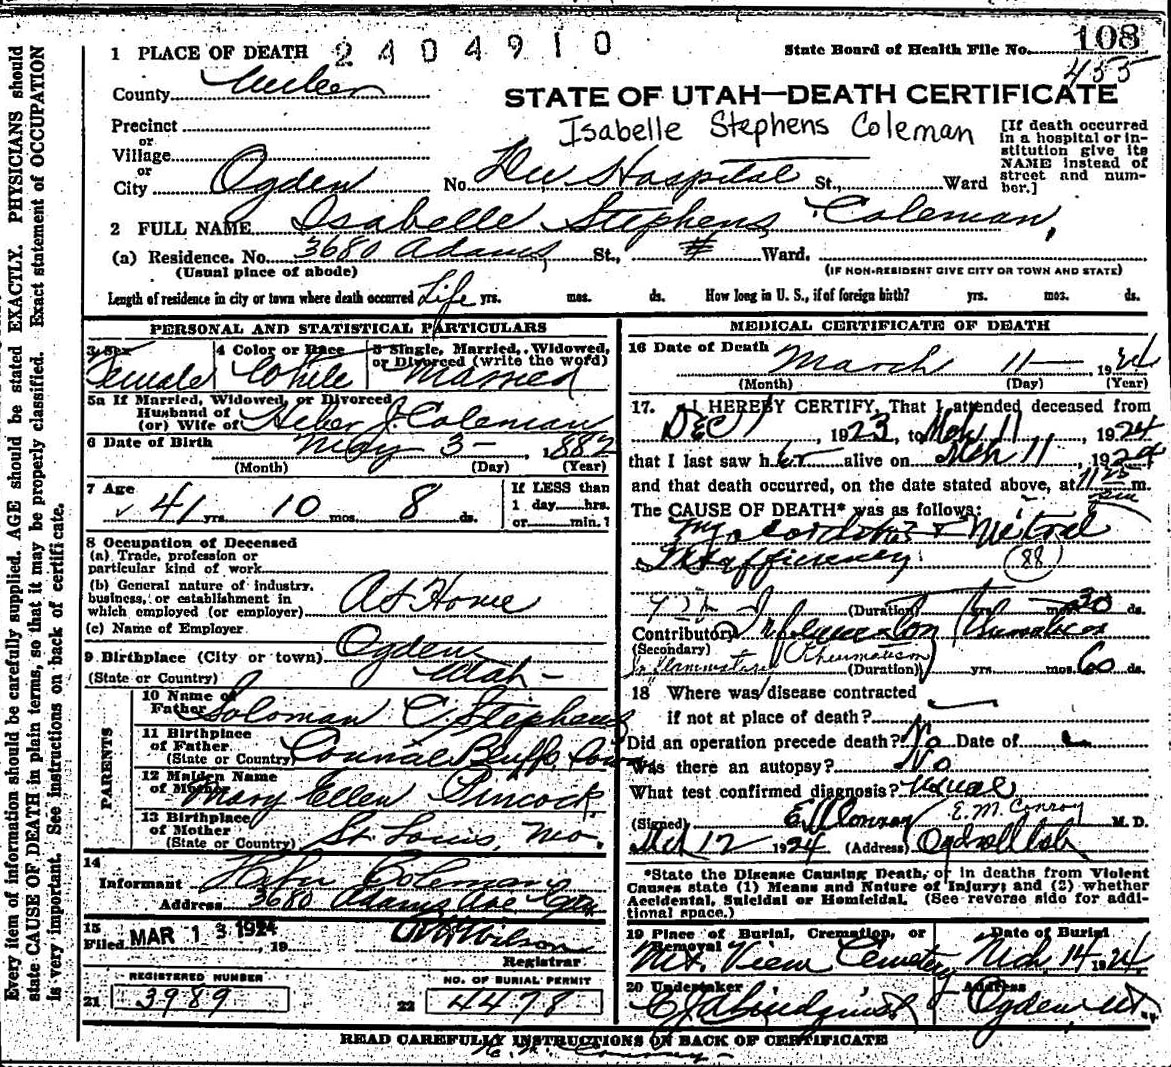 1 PLACE OF DEATH 2404910 State Board of Health File No. 108
455
County Weber
STATE OF UTAH—DEATH CERTIFICATE
Precinct
Isabelle Stephens Coleman
or
Village
or
City Ogden No. Dee Hospital St., Ward
[If death occurred
in a hospital or in-
stitution give its
NAME instead of
street and num-
ber.]
2 FULL NAME Isabelle Stephens Coleman,
(a) Residence. No. 3680 Adams St., # Ward.
(Usual place of abode) (IF NON-RESIDENT GIVE CITY OR TOWN AND STATE)
Length of residence in city or town where death occurred Life yrs. mos. ds. How long in U. S., if of foreign birth? yrs. mos. ds.
PERSONAL AND STATISTICAL PARTICULARS
3 Sex 4 Color or Race 5 Single, Married, Widowed,
or Divorced (write the word)
Female White Married
5a If Married, Widowed, or Divorced
Husband of
(or) Wife of Heber J. Coleman
6 Date of Birth May 3 - , 1882
(Month) (Day) (Year)
7 Age If LESS than
41 yrs. 10 mos. 8 ds. 1 day hrs.
or min.?
8 Occupation of Deceased
(a) Trade, profession or
particular kind of work
(b) General nature of industry,
business, or establishment in
which employed (or employer) At Home
(c) Name of Employer
9 Birthplace (City or town) Ogden
(State or Country) Utah -
PARENTS
10 Name of
Father Soloman C. Stephens
11 Birthplace
of Father
(State or Country) Council Bluffs, Iowa
12 Maiden Name
of Mother Mary Ellen Pincock
13 Birthplace
of Mother
(State or Country) St. Louis, Mo.
14
Informant Heber Coleman
Address 3680 Adams Ave
15
Filed MAR 13 1924, 19
Wilson
Registrar
REGISTERED NUMBER NO. OF BURIAL PERMIT
21 3989 22 4478
MEDICAL CERTIFICATE OF DEATH
16 Date of Death March 11 — , 1924
(Month) (Day) (Year)
17. I HEREBY CERTIFY, That I attended deceased from
Dec , 1923, to Mch 11 , 1924
that I last saw her alive on Mch 11 , 1924
and that death occurred, on the date stated above, at 11 25 m.
The CAUSE OF DEATH* was as follows:
Myocarditis + Mitral
Insufficiency (88)
(Duration) yrs. mos. 30 ds.
Contributory
(Secondary)
Inflammatory Rheumatism (Duration) yrs. mos. 60 ds.
18 Where was disease contracted
if not at place of death?
Did an operation precede death? No Date of
Was there an autopsy? No
What test confirmed diagnosis? Usual
(Signed) EM Conroy E. M. Conroy M. D.
Mch 12 1924 (Address) Ogden Utah
*State the Disease Causing Death, or in deaths from Violent
Causes state (1) Means and Nature of Injury; and (2) whether
Accidental, Suicidal or Homicidal. (See reverse side for addi-
tional space.)
19 Place of Burial, Cremation, or Date of Burial
Removal
Mt. View Cemetery Mch. 14 1924
20 Undertaker Address
Lindquist Ogden, Ut.
READ CAREFULLY INSTRUCTIONS ON BACK OF CERTIFICATE
Every item of information should be carefully supplied. AGE should be stated EXACTLY. PHYSICIANS should
state CAUSE OF DEATH in plain terms, so that it may be properly classified. Exact statement of OCCUPATION
is very important. See instructions on back of certificate.